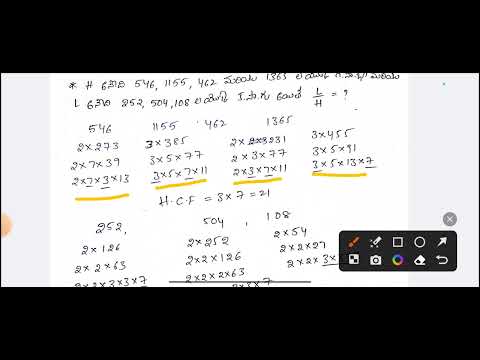 * H అనేది 546, 1155, 462 మరియు 1365 ల యొక్క గ.సా.భా మరియు
L అనేది 252, 504, 108 ల యొక్క క.సా.గు అయితే L/H = ?
546 1155 , 462 1365
2×273 3×385 2×2×3231 3×455
2×7×39 3×5×77 2×3×77 3×5×91
2×7×3×13 3×5×7×11 2×3×7×11 3×5×13×7
H.C.F = 3×7 = 21
252, 504, 108
2×126 2×252 2×54
2×2×63 2×2×126 2×2×27
2×2×3×3×7 2×2×2×63 2×2×3×
2×3×7